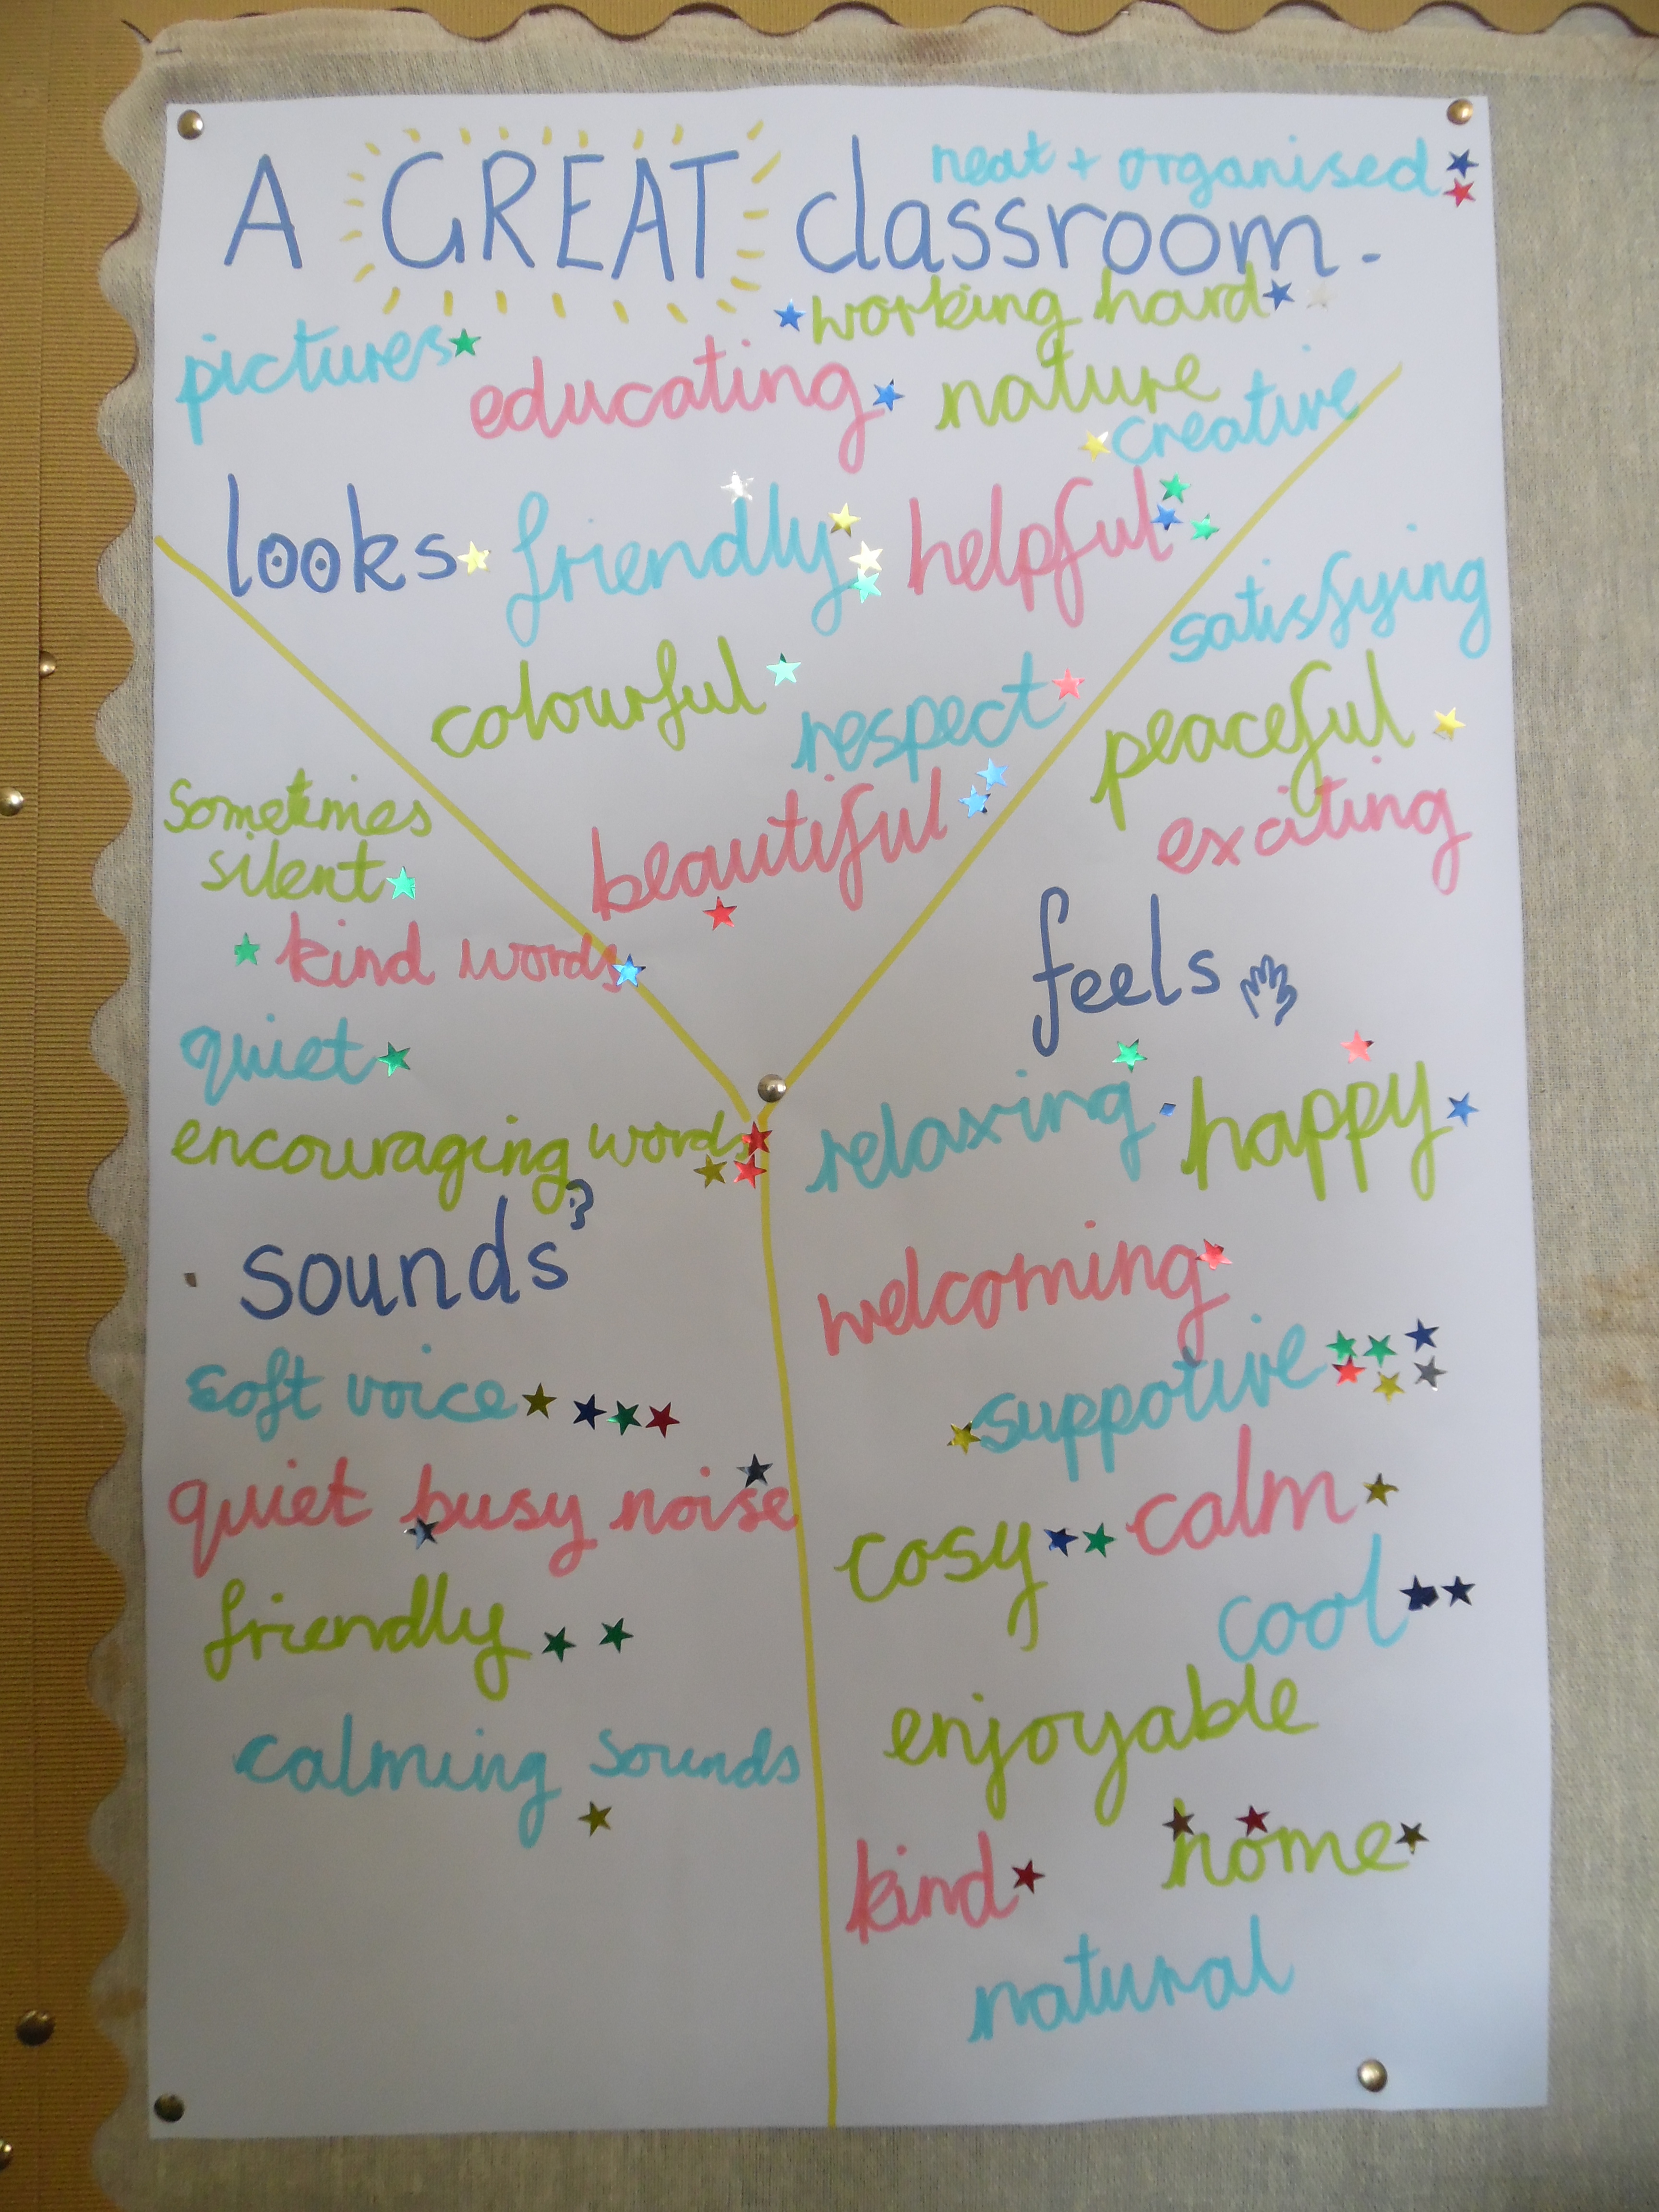 neat + organised
A GREAT classroom.
working hard
pictures
educating
nature
creative
looks
friendly
helpful
colourful
respect
beautiful
Sometimes
silent
kind words
quiet
encouraging words
sounds
soft voice
quiet busy noise
friendly
calming sounds
satisfying
peaceful
exciting
feels
relaxing
happy
welcoming
suppotive
cosy
calm
cool
enjoyable
home
kind
natural